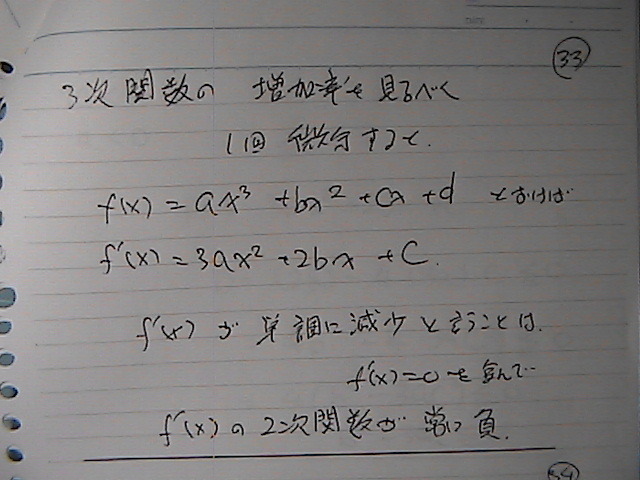 33
3次関数の 増加率を見るべく
1回 微分すると.
f(x) = ax³ + bx² + cx + d とおけば
f'(x) = 3ax² + 2bx + C.
f'(x) が 単調に減少と言うことは.
f'(x) = 0 を含んで…
f'(x) の 2次関数が 常に負.
34